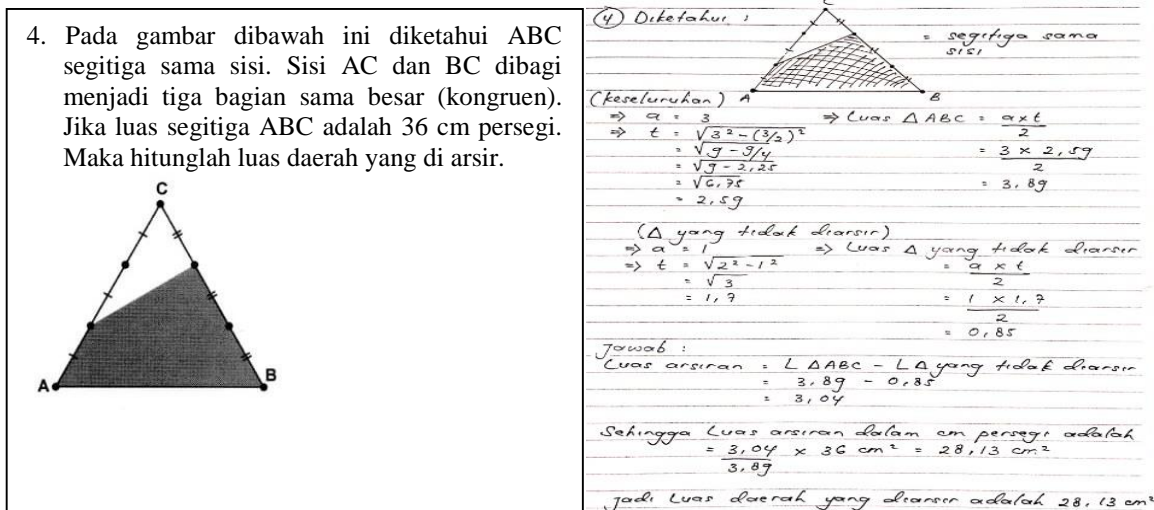 4. Pada gambar dibawah ini diketahui ABC
segitiga sama sisi. Sisi AC dan BC dibagi
menjadi tiga bagian sama besar (kongruen).
Jika luas segitiga ABC adalah 36 cm persegi.
Maka hitunglah luas daerah yang di arsir.
C
A
B
④ Diketahui :
C
= segitiga sama
sisi
A
B
(keseluruhan)
⇒ a = 3
⇒ t = √3² - (3/2)²
= √9 - 9/4
= √9 - 2,25
= √6,75
= 2,59
⇒ Luas △ ABC = a x t / 2
= 3 x 2,59 / 2
= 3,89
(△ yang tidak diarsir)
⇒ a = 1
⇒ t = √2² - 1²
= √3
= 1,7
⇒ Luas △ yang tidak diarsir
= a x t / 2
= 1 x 1,7 / 2
= 0,85
Jawab :
Luas arsiran = L △ABC - L△ yang tidak diarsir
= 3,89 - 0,85
= 3,04
Sehingga Luas arsiran dalam cm persegi adalah
= 3,04 / 3,89 x 36 cm² = 28,13 cm²
Jadi Luas daerah yang diarsir adalah 28,13 cm²